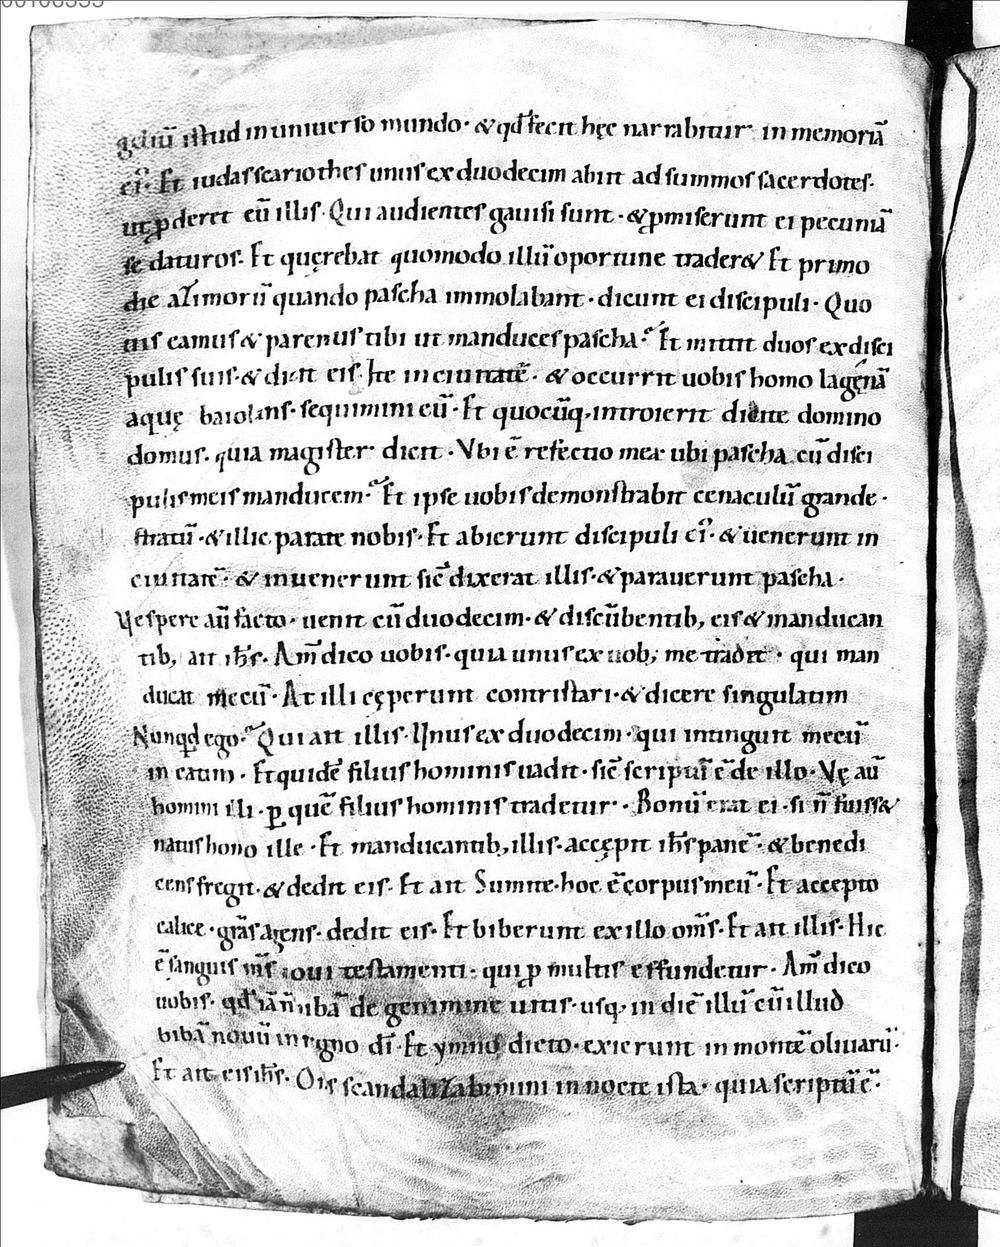 geliū istud in uniuerso mundo· & qd̄ fecit hęc narrabitur in memoriā
ei᷒· Et iudas scariothes unus ex duodecim abiit ad summos sacerdotes·
ut ꝓderet eū illis· Qui audientes gauisi sunt· & ꝓmiserunt ei pecuniā
se daturos· Et quęrebat quomodo illū oportune trader& Et primo
die azimorū quando pascha immolabant· dicunt ei discipuli· Quo
uis eamus & paremus tibi ut manduces pascha? Et mittit duos ex disci
pulis suis· & dicit eis· Ite in ciuitatē· & occurrit uobis homo lagęnā
aquę baiolans· sequimini eū· Et quocūq; introierit dicite domino
domus· quia magister dicit· Vbi ē refectio mea ubi pascha cū disci
pulis meis manducem? Et ipse uobis demonstrabit cenaculū grande·
stratū· & illic parate nobis· Et abierunt discipuli ei᷒· & uenerunt in
ciuitatē· & inuenerunt sic̄ dixerat illis· & parauerunt pascha·
Vespere aū facto· uenit cū duodecim· & discūbentib; eis & manducan
tib; ait ih̄s· Am̄ dico uobis· quia unus ex uob; me tradet· qui man
ducat mecū· At illi cęperunt contristari· & dicere singulatim
Nunqd ego? Qui ait illis· Vnus ex duodecim· qui intinguit mecū
in catino· Et quidē filius hominis uadit· sic̄ scriptū ē de illo· Vę aū
homini illi· ꝑ quē filius hominis tradetur· Bonū erat ei· si n̄ fuiss&
natus homo ille· Et manducantib; illis· accępit ih̄s panē· & benedi
cens fregit· & dedit eis· Et ait Sumite· hoc ē corpus meū· Et accepto
calice· gr̄as agens· dedit eis· Et biberunt ex illo om̄s· Et ait illis· Hic
ē sanguis m̄s noui testamenti· qui ꝓ multis effundetur· Am̄ dico
uobis· qd̄ iā n̄ bibā de genimine uitis· usq; in diē illū cū illud
bibā nouū in regno dī· Et ymno dicto· exierunt in montē oliuarū·
Et ait eis ih̄s· Om̄s scandalizabimini in nocte ista· quia scriptū ē·